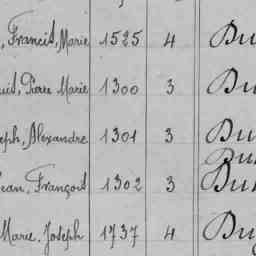 , Francis, Marie 1525 4 Du
uis, Pierre Marie 1300 3 Du
eph, Alexandre 1301 3 Du
Du
ean, François 1302 3 Du
Marie, Joseph 1737 4 Du